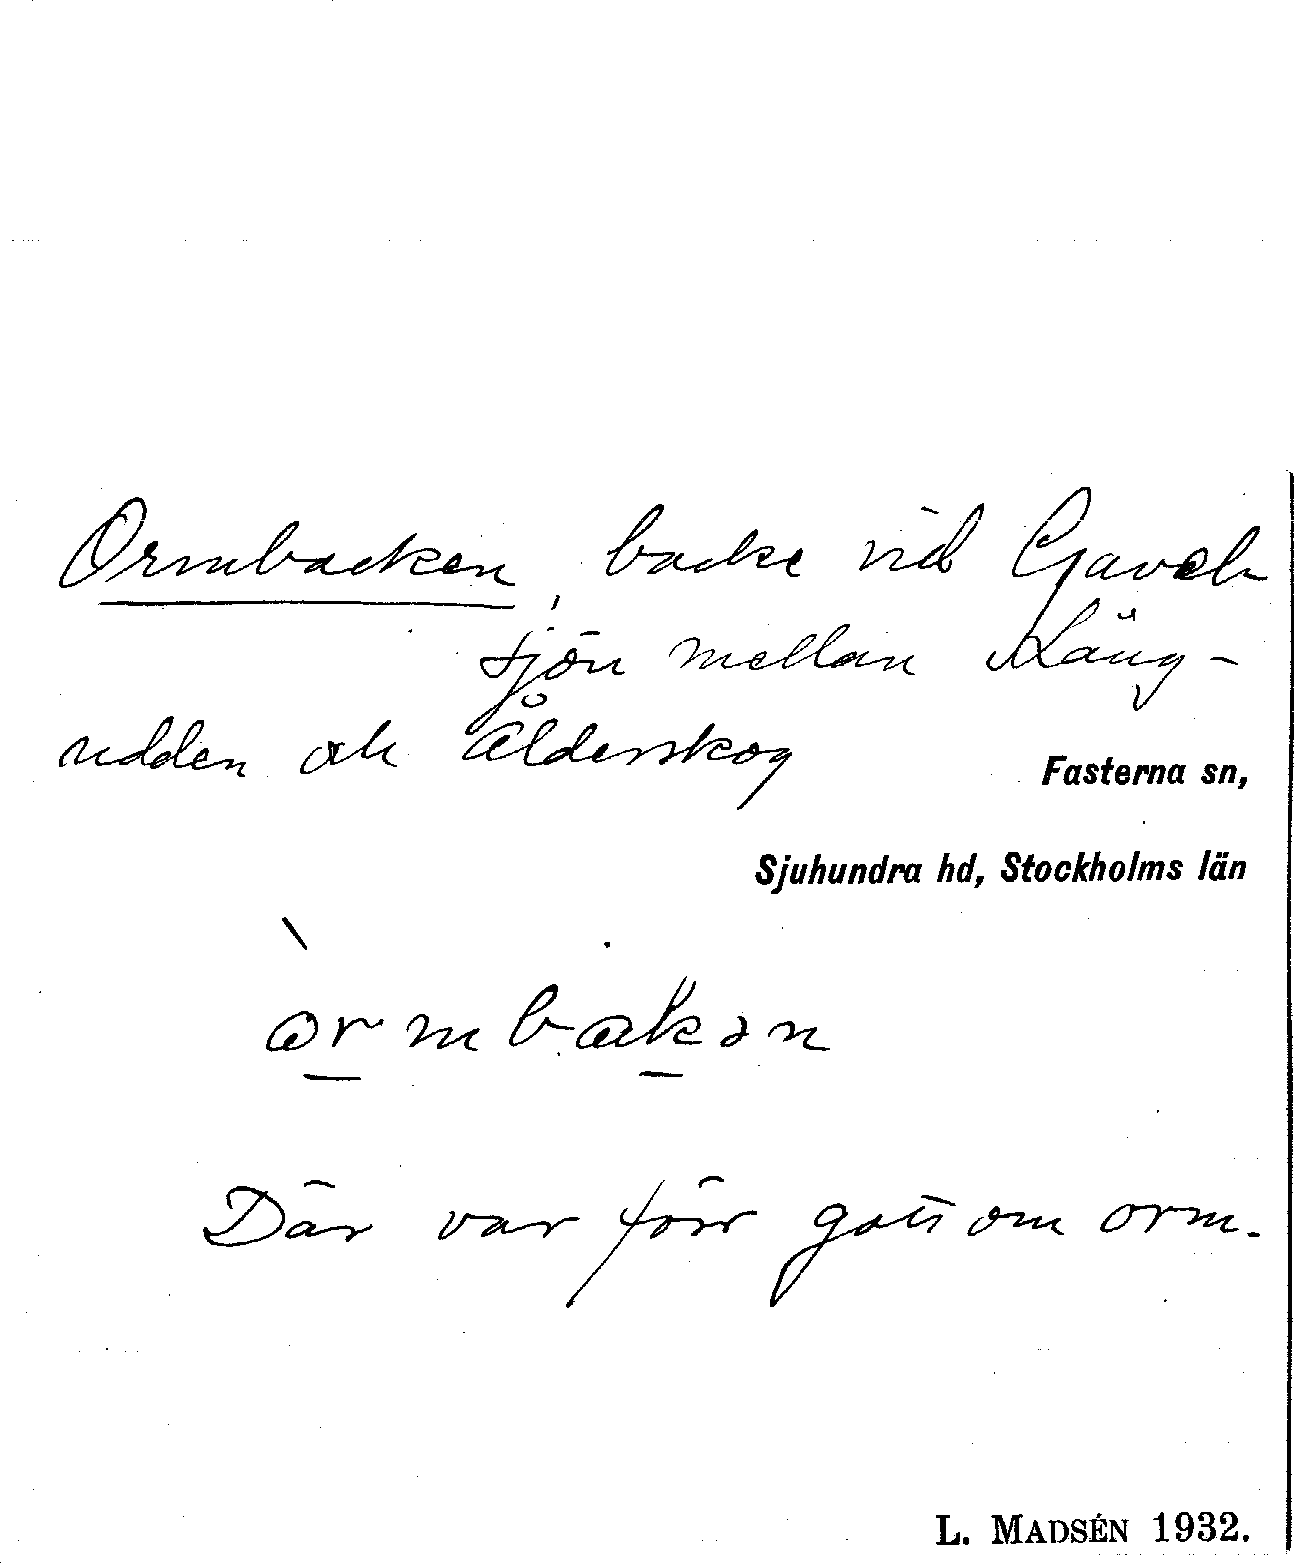 Ormbacken, backe vid Gavel-
sjön mellan Läng-
udden och Ålderskog
Fasterna sn,
Sjuhundra hd, Stockholms län
òrmbakən
Där var förr gott om orm.
L. MADSÉN 1932.